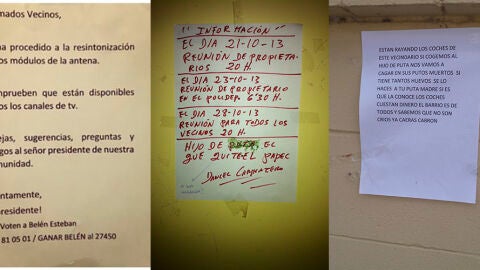 mados Vecinos,
ha procedido a la resintonización
os módulos de la antena.
mprueben que están disponibles
os los canales de tv.
ejas, sugerencias, preguntas y
gos al señor presidente de nuestra
munidad.
ntamente,
residente!
Voten a Belén Esteban
81 05 01 / GANAR BELÉN al 27450
"INFORMACIÓN"
EL DIA 21-10-13
REUNIÓN DE PROPIETA-
RIOS 20 H.
EL DIA 23-10-13
REUNIÓN DE PROPIETARIO
EN EL POLIDER 6'30 H.
EL DIA 28-10-13
REUNIÓN PARA TODOS LOS
VECINOS 20 H.
HIJO DE PUTA EL
QUE QUITE EL PAPEL
DANIEL CARPINTERO
ESTAN RAYANDO LOS COCHES DE
ESTE VECINDARIO SI COGEMOS AL
HIJO DE PUTA NOS VAMOS A
CAGAR EN SUS PUTOS MUERTOS SI
TIENE TANTOS HUEVOS SE LO
HACES A TU PUTA MADRE SI ES
QUE LA CONOCE LOS COCHES
CUESTAN DINERO EL BARRIO ES DE
TODOS Y SABEMOS QUE NO SON
CRIOS YA CAERAS CABRON